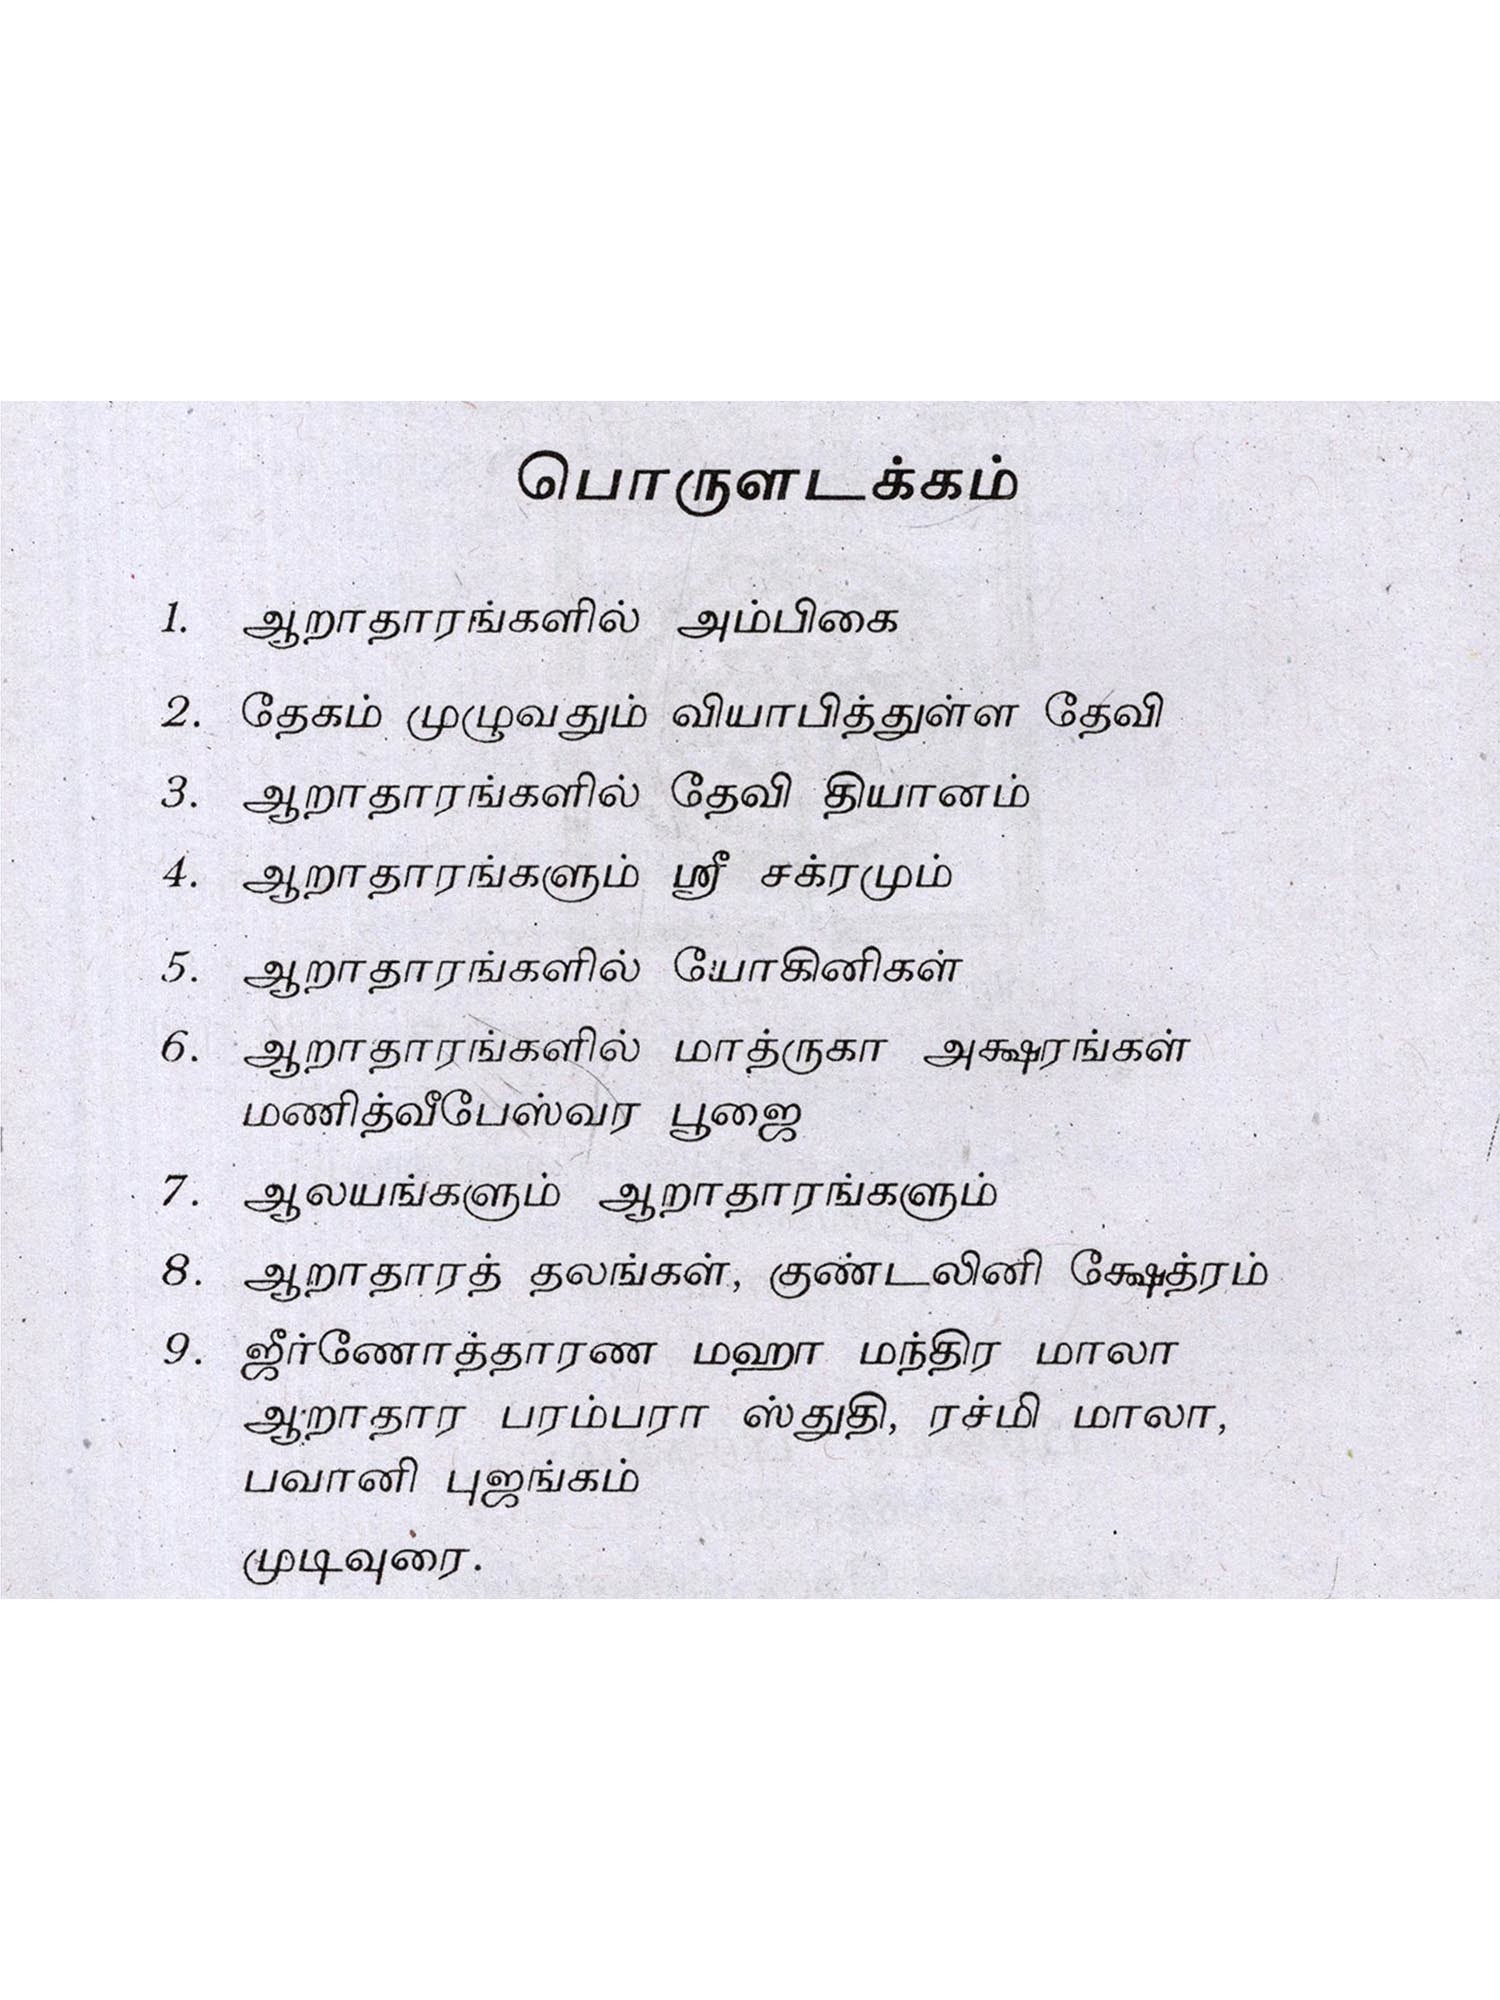 பொருளடக்கம்
1. ஆறாதாரங்களில் அம்பிகை
2. தேகம் முழுவதும் வியாபித்துள்ள தேவி
3. ஆறாதாரங்களில் தேவி தியானம்
4. ஆறாதாரங்களும் ஸ்ரீ சக்ரமும்
5. ஆறாதாரங்களில் யோகினிகள்
6. ஆறாதாரங்களில் மாத்ருகா அக்ஷரங்கள்
மணித்வீபேஸ்வர பூஜை
7. ஆலயங்களும் ஆறாதாரங்களும்
8. ஆறாதாரத் தலங்கள், குண்டலினி க்ஷேத்ரம்
9. ஜீர்ணோத்தாரண மஹா மந்திர மாலா
ஆறாதார பரம்பரா ஸ்துதி, ரச்மி மாலா,
பவானி புஜங்கம்
முடிவுரை.